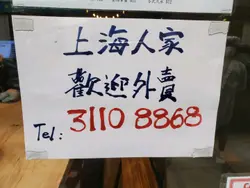 上海人家
歡迎外賣
Tel: 3110 8868